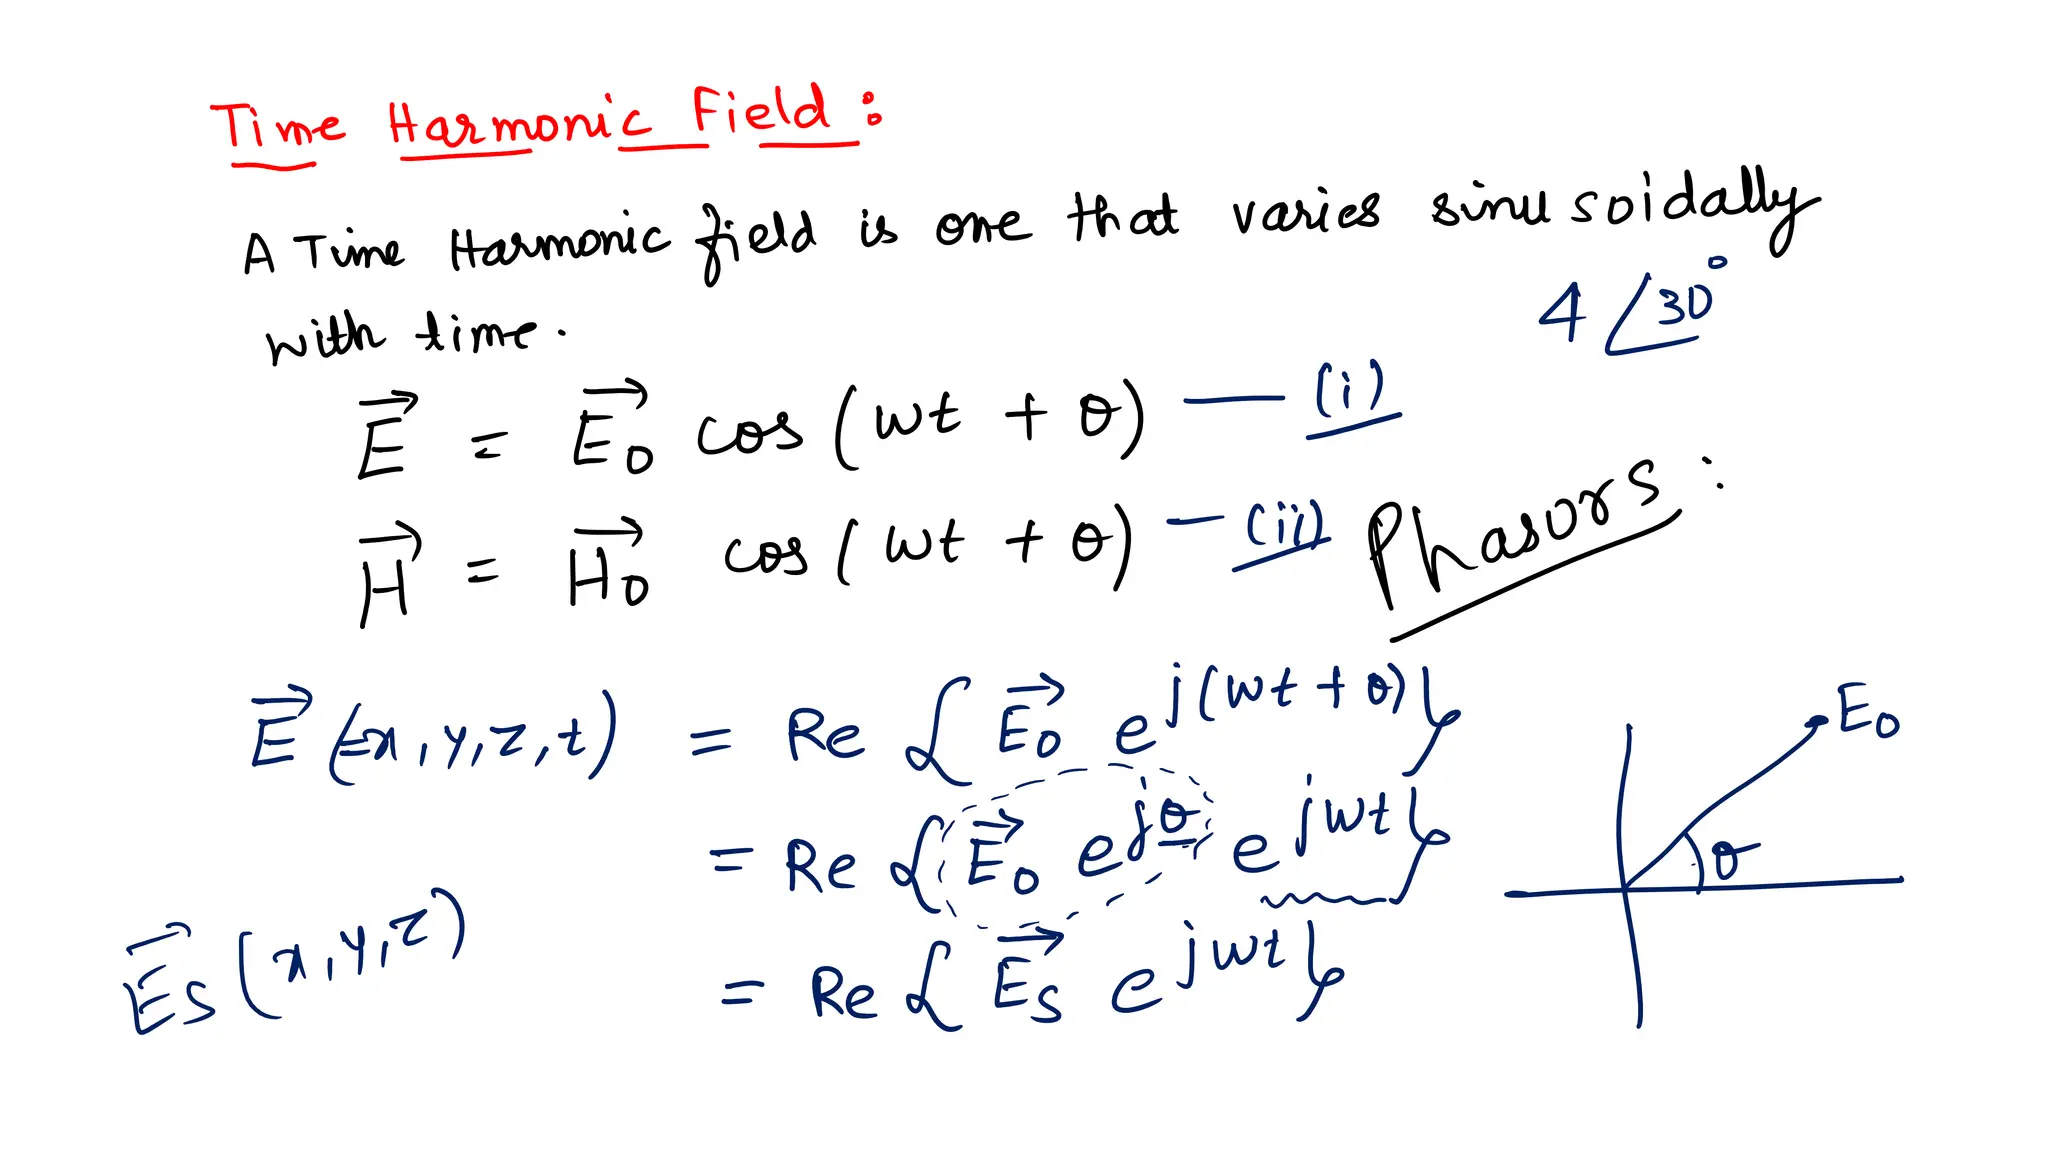 Time Harmonic Field :
A Time Harmonic field is one that varies sinusoidally
with time.
4 ∠30°
E⃗ = E⃗₀ cos(wt + θ) — (i)
H⃗ = H⃗₀ cos(wt + θ) — (ii)
Phasors :
E⃗(x,y,z,t) = Re { E⃗₀ e^{j(wt+θ)} }
= Re { E⃗₀ e^{jθ} e^{jwt} }
E⃗s(x,y,z)
= Re { E⃗s e^{jwt} }
E₀
θ